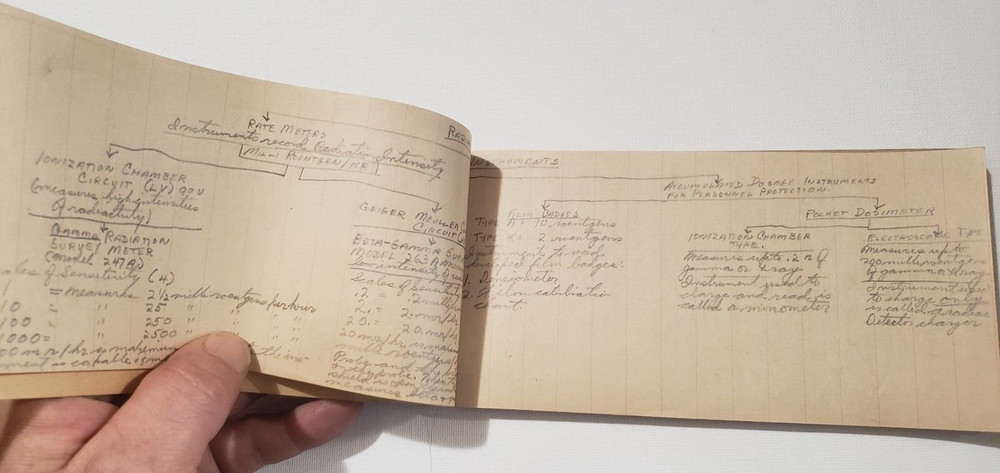 RATE METERS
Instruments record Radiation Intensity
MILLI ROENTGEN/HR
IONIZATION CHAMBER
CIRCUIT (LV) 90V
(measures high intensities
of radioactivity)
Gamma RADIATION
SURVEY METER
(model 247A)
of Sensitivity (4)
1 = measures 2 1/2 milliroentgens per hour
10 = " 25 " " "
100 = " 250 " " "
1000 = " 2500 " "
mr/hr is maximum
ment is capable of
GEIGER MEULLER
CIRCUIT
BETA-GAMMA SUR
MODEL 263A
low intensity of
Scales of Sensit
.2 = .2 mr/h
2. = 2. mr/h
20. = 20 mr/h
20 mr/hr is maxim
milli roentgens
shield is open
measures
INSTRUMENTS
FILM BADGES
TYPE A = 10 roentgens
TYPE K = 2 roentgens
Instruments to read
film badges:
1. Densiometer
2. Film calibration
ACCUMULATED DOSAGE INSTRUMENTS
FOR PERSONNEL PROTECTION.
POCKET DOSIMETER
IONIZATION CHAMBER
TYPE.
Measures up to .2 r of
gamma or X rays
Instrument used to
charge and read is
called a minometer
ELECTROSCOPIC TYPE
Measures up to
200 milliroentgens
of gamma & X rays
Instrument used
to charge only
is called a radiac
Detector charger